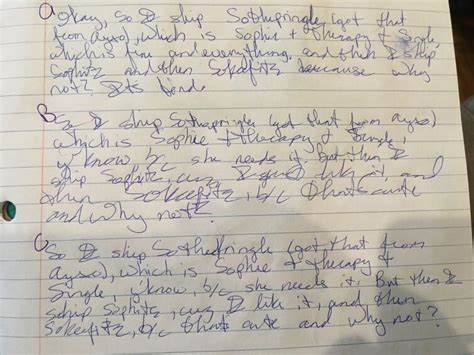 A Okay, so I ship Sothupringle (got that
from ayso), which is Sophie + Therapy + Single,
which is fine and everything, and then I ship
Sophitz and then Sokeefitz because why
not?
B. So I ship Sothapringle (got that from ayso)
which is Sophie + therapy + Single,
y'know, b/c she needs it. But then I
ship Sophitz, cuz I like it, and
then Sokeefitz, b/c that's cute
and why not?
C So I ship Sothepringle (got that from
ayso), which is Sophie + therapy +
Single, y'know, b/c she needs it, But then I
ship Sophitz, cuz I like it, and then
Sokeefitz, b/c that cute and why not?